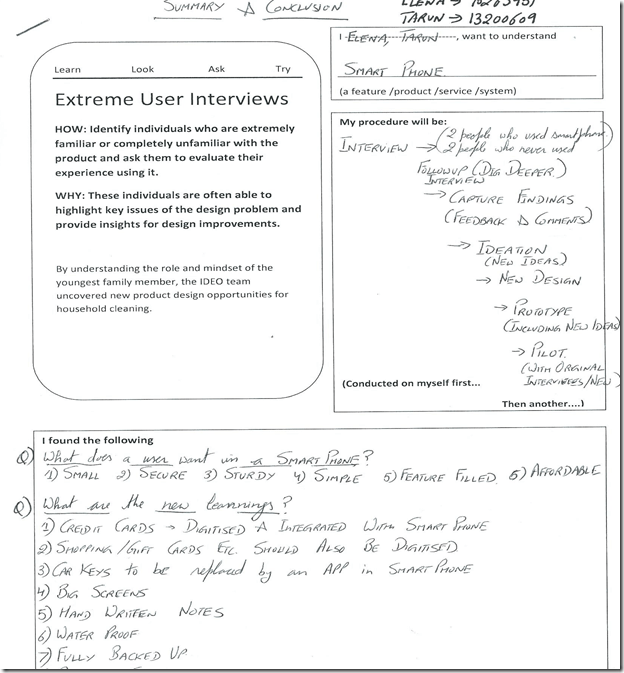 SUMMARY & CONCLUSION
TARUN → 13200609
Learn Look Ask Try
Extreme User Interviews
HOW: Identify individuals who are extremely
familiar or completely unfamiliar with the
product and ask them to evaluate their
experience using it.
WHY: These individuals are often able to
highlight key issues of the design problem and
provide insights for design improvements.
By understanding the role and mindset of the
youngest family member, the IDEO team
uncovered new product design opportunities for
household cleaning.
I ELENA, TARUN, want to understand
SMART PHONE
(a feature /product /service /system)
My procedure will be:
(2 people who used smartphone
INTERVIEW → 2 people who never used
FOLLOWUP (DIG DEEPER)
INTERVIEW
→ CAPTURE FINDINGS
(FEEDBACK & COMMENTS)
→ IDEATION
(NEW IDEAS)
→ NEW DESIGN
→ PROTOTYPE
(INCLUDING NEW IDEAS)
→ PILOT
(WITH ORGINAL
INTERVIEWEES/NEW)
(Conducted on myself first...
Then another....)
I found the following
Q) What does a user want in a SMART PHONE?
1) SMALL 2) SECURE 3) STURDY 4) SIMPLE 5) FEATURE FILLED 6) AFFORDABLE
Q) What are the new learnings?
1) CREDIT CARDS → DIGITISED & INTEGRATED WITH SMART PHONE
2) SHOPPING/GIFT CARDS ETC. SHOULD ALSO BE DIGITISED
3) CAR KEYS to be replaced by an APP in SMART PHONE
4) BIG SCREENS
5) HAND WRITTEN NOTES
6) WATER PROOF
7) FULLY BACKED UP